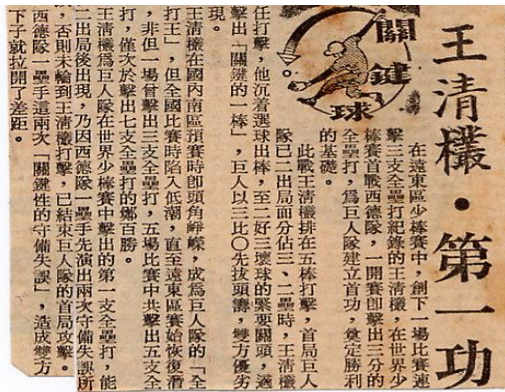 王清欉・第一功
關鍵球
在遠東區少棒賽中，創下一場比賽連
擊三支全壘打紀錄的王清欉，在世界少
棒賽首戰西德隊，一開賽卽擊出三分
全壘打，爲巨人隊建立首功，奠定勝利
的基礎。
此戰王清欉排在五棒打擊，首局巨人
隊已二出局而分佔三、二壘時，王清欉
任打擊，他沉着選球出棒，至二好三壞球的緊要關頭，適
擊出「關鍵的一棒」，巨人以三比〇先拔頭籌，雙方優劣
王清欉在國內南區預賽時卽頭角崢嶸，成爲巨人隊的「全
打王」，但全國比賽時陷入低潮，直至遠東區賽始恢復
，非但一場曾擊出三支全壘打，五場比賽中共擊出五支全
打，僅次於擊出七支全壘打的鄉百勝。
王清欉爲巨人隊在世界少棒賽中擊出的第一支全壘打，能
二出局後出現，乃因西德隊一壘手先演出兩次守備失誤所
，否則未輪到王清欉打擊，已結束巨人隊的首局攻擊。
西德隊一壘手這兩次「關鍵性的守備失誤」，造成雙方
下子就拉開了差距。